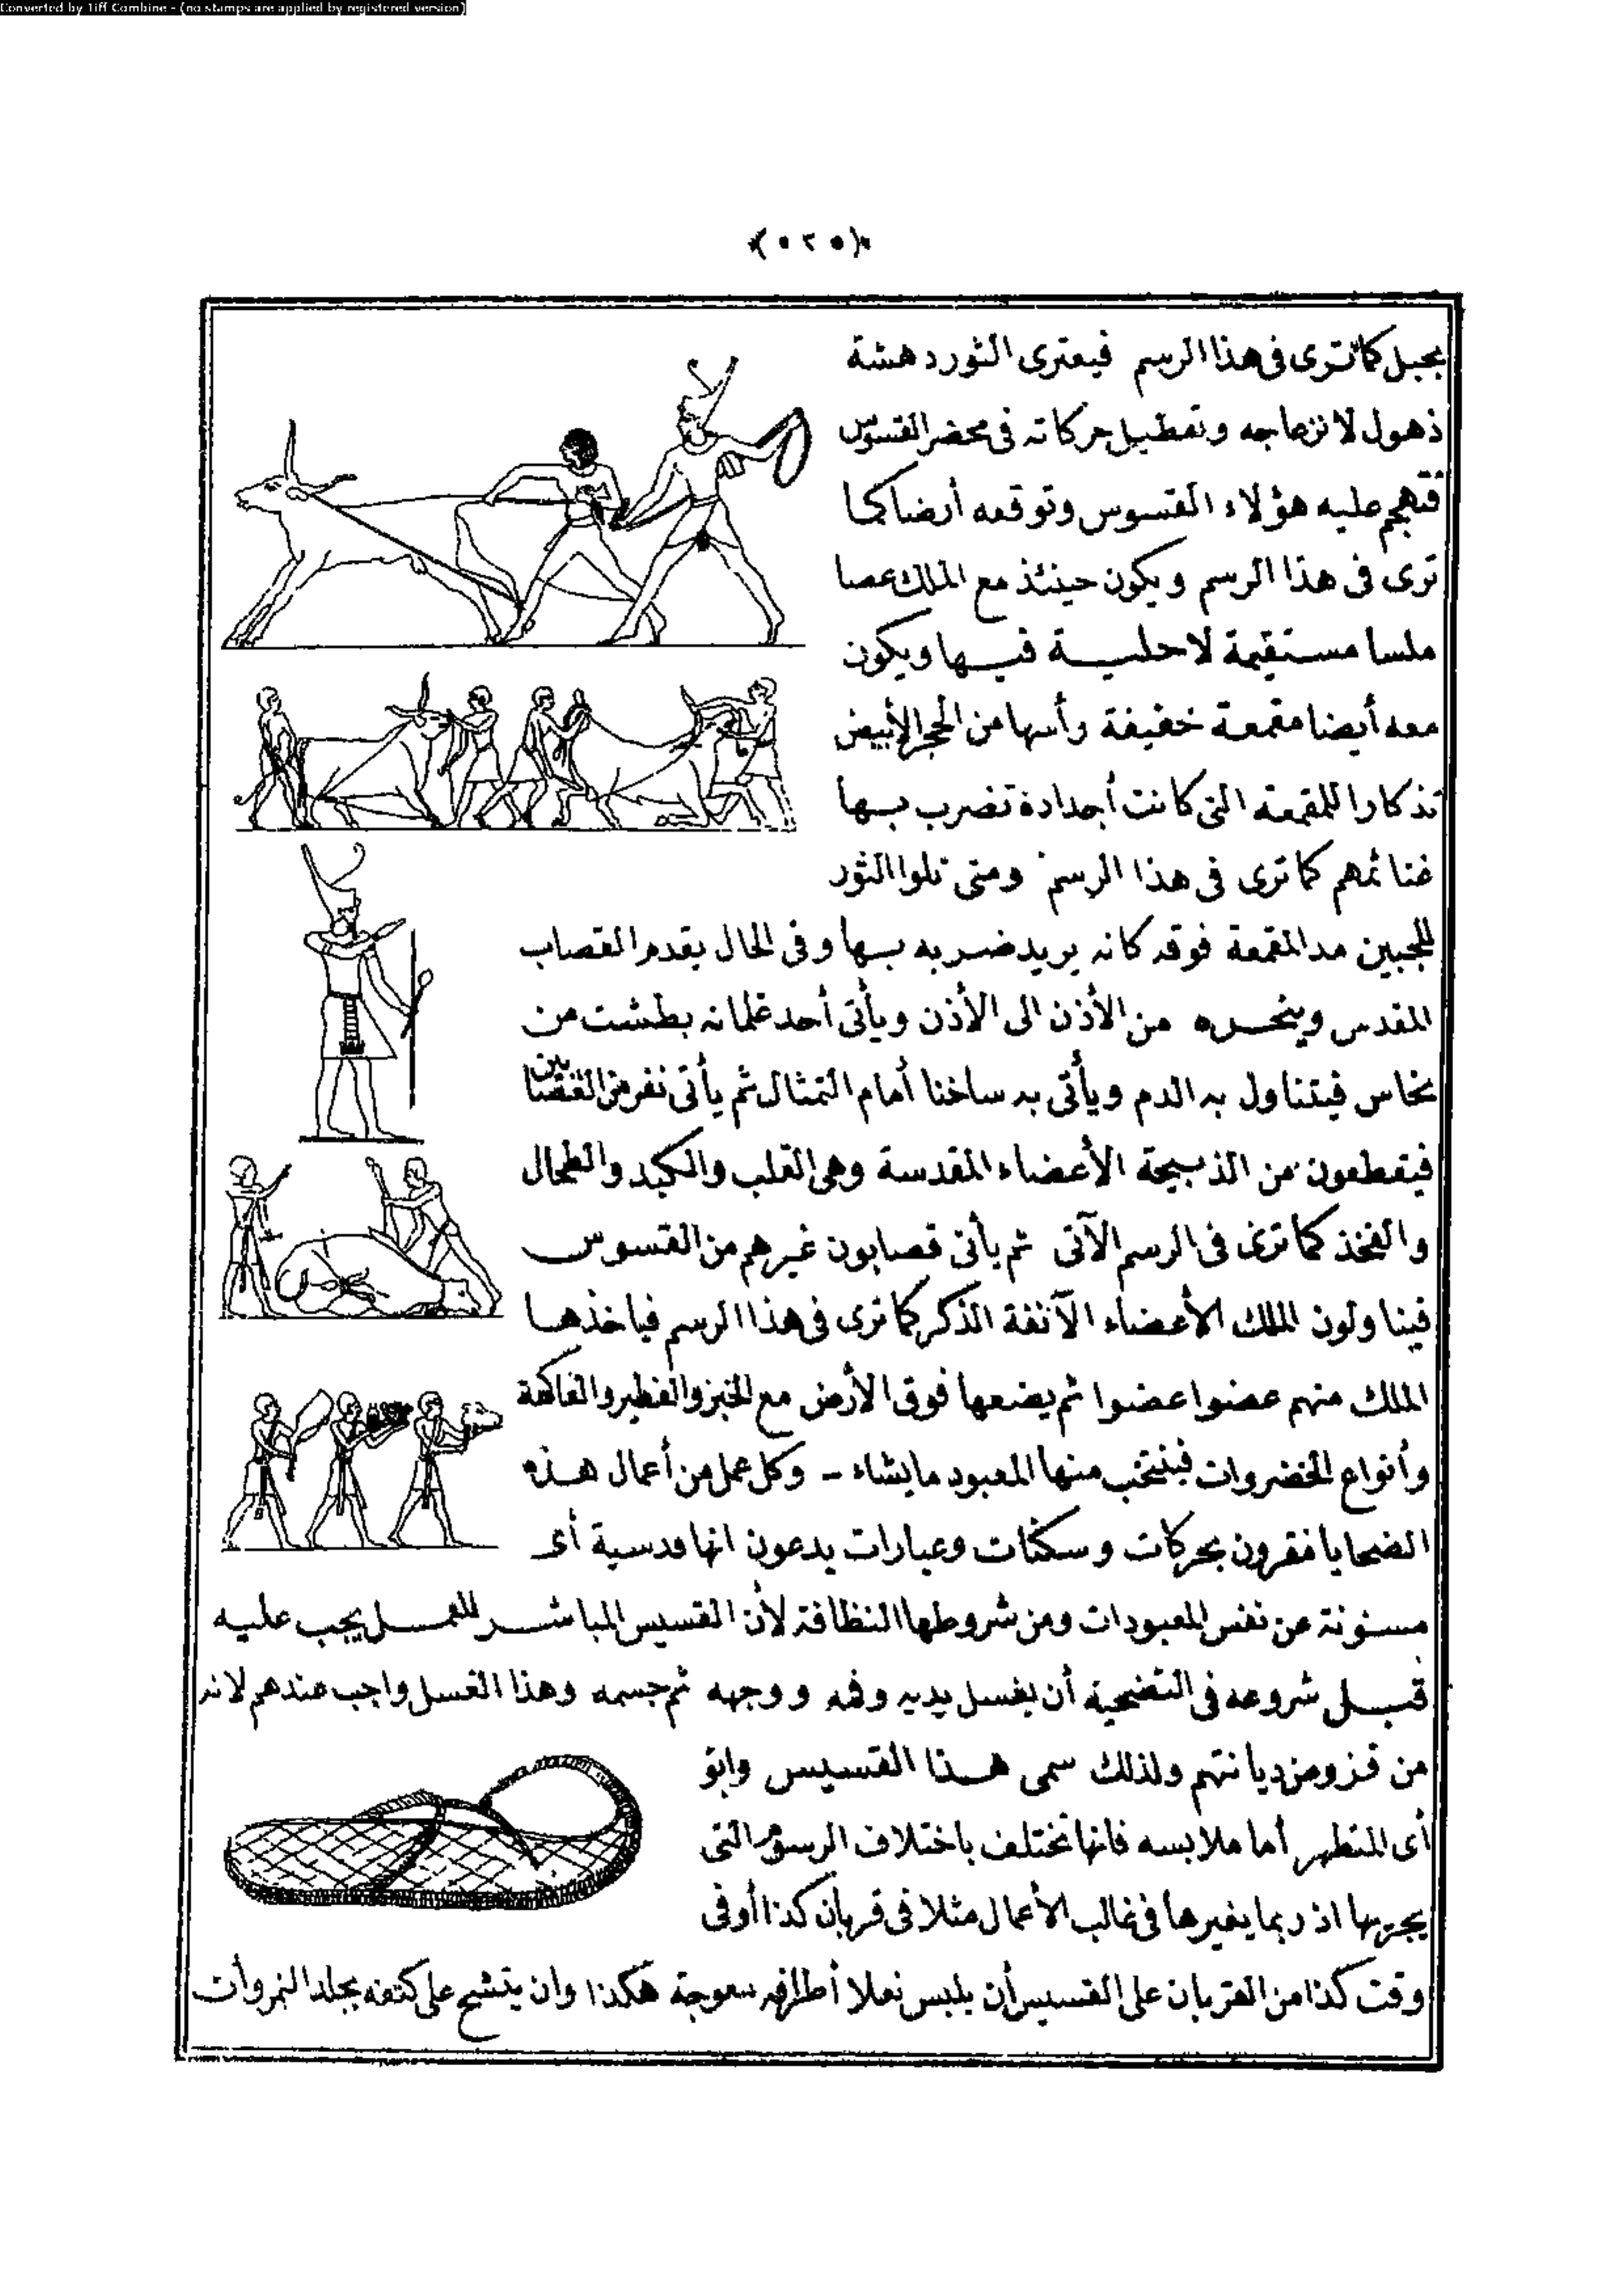 Converted by Tiff Combine - (no stamps are applied by registered version)
﴿٥٢٥﴾
بحبل كما ترى فى هذا الرسم فيعترى الثور دهشة
ذهول لانزعاجه وتعطيل حركاته فى محضر القسوس
فتهجم عليه هؤلاء القسوس وتوقعه أرضا كما
ترى فى هذا الرسم ويكون حينئذ مع الملك عصا
ملسا مستقيمة لا حلية فيها ويكون
معه أيضا مقمعة خفيفة رأسها من الحجر الأبيض
تذكارا للمقمعة التى كانت أجداده تضرب بها
غنائمهم كما ترى فى هذا الرسم ومتى تلوا الثور
للجبين مد المقمعة فوقه كانه يريد ضربه بها وفى الحال يقدم القصاب
المقدس وينحره من الأذن الى الأذن ويأتى أحد غلمانه بطشت من
نحاس فيتناول به الدم ويأتى به ساخنا أمام التمثال ثم يأتى نفر من القصابين
فيقطعون من الذبيحة الأعضاء المقدسة وهى القلب والكبد والطحال
والفخذ كما ترى فى الرسم الآتى ثم يأتى قصابون غيرهم من القسوس
فيناولون الملك الأعضاء الآنفة الذكر كما ترى فى هذا الرسم فياخذها
الملك منهم عضوا عضوا ثم يضعها فوق الأرض مع الخبز والفطير والفاكهة
وأنواع الخضروات فينتخب منها المعبود ما يشاء - وكل عمل من أعمال هذه
الضحايا مقرون بحركات وسكنات وعبارات يدعون انها قدسية أى
مسنونة عن نفس المعبودات ومن شروطها النظافة لأن القسيس المباشر للعمل يجب عليه
قبل شروعه فى التضحية أن يغسل يديه وفمه ووجهه ثم جسمه وهذا الغسل واجب عندهم لانه
من فروض ديانتهم ولذلك سمى هذا القسيس وابو
أى المتطهر أما ملابسه فانها تختلف باختلاف الرسوم التى
يجريها اذ ربما يغيرها فى غالب الأعمال مثلا فى قربان كذا أو فى
وقت كذا من القربان على القسيس أن يلبس نعلا أطرافه معوجة هكذا وان يتشح على كتفه بجلد النمر وأن